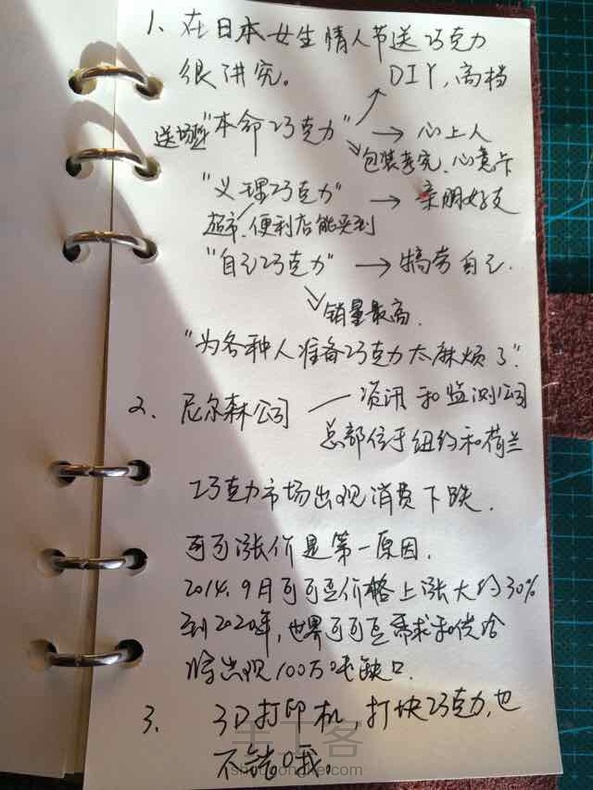 1、在日本女生情人节送巧克力
很讲究。 DIY,高档
"本命巧克力" → 心上人
包装考究、心意卡
"义理巧克力" → 亲朋好友
超市、便利店能买到
"自己巧克力" → 犒劳自己.
销量最高.
"为各种人准备巧克力太麻烦了".
2、尼尔森公司 — 资讯和监测公司
总部位于纽约和荷兰
巧克力市场出现消费下跌.
可可涨价是第一原因.
2014.9月可可豆价格上涨大约30%
到2020年,世界可可豆需求和供给
将出现100万吨缺口.
3、 3D打印机,打块巧克力,也
不错哦。
手工客
shougongke.com